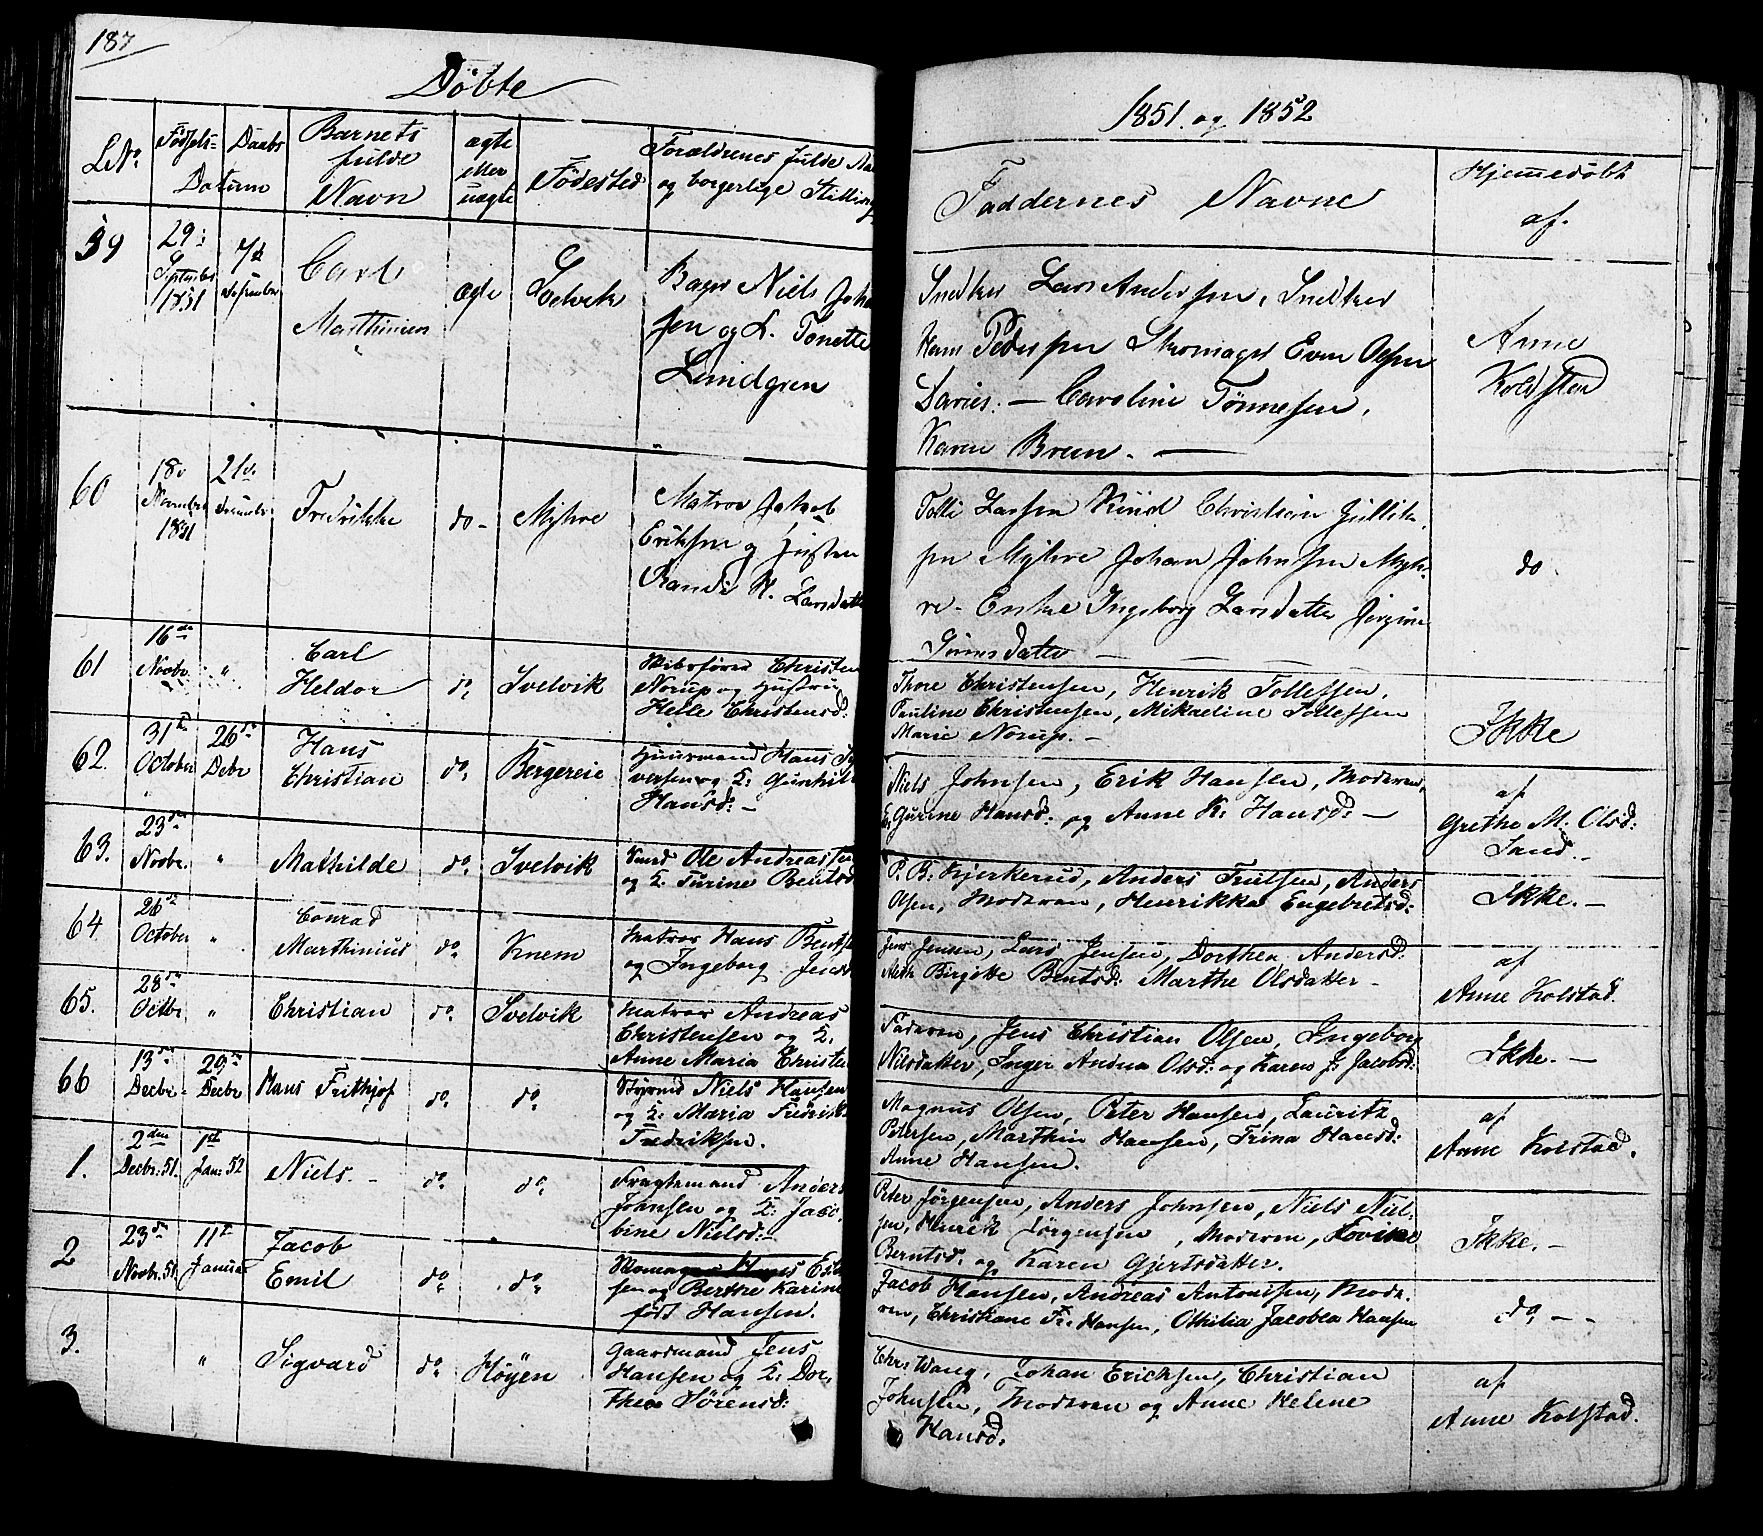 187
Döbte
1851 og 1852
LNo.
Födsels=
Daabs
Datum
Barnets
fulde
Navn
ægte
eller
uægte
Födested
Forældrenes fulde Na
og borgerlige Stilling
Faddernes Navne
Hjemmedöbt
af.
59
29:
September
1851
7d
December
Carl
Marthinien
ægte
Svelvik
Bager Niels Joha
sen og K. Tonette
Lundgren
Snedker Lars Andersen, Snedker
Hans Pedersen Skomager Even Olsen
Caroline Tönnesen,
Karen Brun. —
Anne
Koldsten
60
18d
November
1851
21d.
December
Fredrikke
do-
Myhre
Matros Jakob
Eriksen og
Randi K. Larsdatte
Tolli Larsen Christian Gullik
sen Myhre Johan Johnsen Myh-
re- Enke Ingeborg Larsdatter
do
61
16de
Novbr.
"
Carl
Heldor
do.
Svelvik
Skibsförer Christen
Norup og Hustru
Helle Christensd:
Thore Christensen, Henrik Tollefsen,
Pauline Christensen, Mikaeline Tollefsen
Marie Norup. -
Ikke
62.
31te
October
26de
Debr
Hans
Christian
do.
Bergereie
Huusmand Hans
versen og K. Gunhil
Hansd: -
Niels Johnsen, Erik Hansen, Moderen,
Gurine Hansd: og Anne K. Hansd: —
af
Grethe M. Olsd:
Sand.-
63.
23de
Novbr.
"
Mathilde
do.
Svelvik
Ole Andreassen
og K. Turine Bentsd
P. B. Kjerkerud, Anders Truelsen, Anders
Olsen, Moderen, Henrikka Engebretsd:
Ikke.-
64.
26de
October
"
Conrad
Marthinius
do.
Knem
Matros Hans Bentse
og Ingeborg Jensd
Jens Jensen, Lars Jensen, Dorthea Andersd:
Birgitte Bentsd: Marthe Olsdatter-
af
Anne Kolstad.
65.
28de
Octbr.
"
Christian
do.
Svelvik
Matros Andreas
Christensen og K.
Anne Maria Christe
Faderen, Jens Christian Olsen, Ingeborg
Nilsdatter, Inger Andrea Olsd: og Karen J. Jacobsd:
Ikke.-
66
13de
Decbr.
29de
Decbr
Hans Frithjof
do.
do.
Styrmd Niels Hansen
og K. Maria Fedrikk
Fredriksen.
Magnus Olsen, Peter Hansen, Lauritz
Petersen, Marthin Hansen, Trina Hansd:
Anne Hansen.
af
Anne Kolstad.
1.
2den
Decbr. 51.
1st
Jan: 52
Niels.-
do.
do.
Fragtemand Anders
Johnsen og K: Jaco-
bine Nielsd:-
Peter Jörgensen, Anders Johnsen, Niels Niel-
sen, Henrik Jörgensen, Moderen, Lovise
Berntsd. og Karen Gjertsdatter.
Ikke.-
2
23de
Novbr. 51.
11te
Januar
Jacob
Emil
do.
do.
Skomager
sen og Berthe Karine
född Hansen.
Jacob Hansen, Andreas Antonisen, Mode-
ren, Christiane Fr. Hansen, Othilia Jacobea Hansen
do.--
3.
"
Sigvard
do.
Höyen
Gaardmand Jens
Hansen og K. Dor-
thea Sörensd:
Chr. Wang, Johan Erichsen, Christian
Johnsen, Moderen og Anne Helene
Hansd:
af
Anne Kolstad.